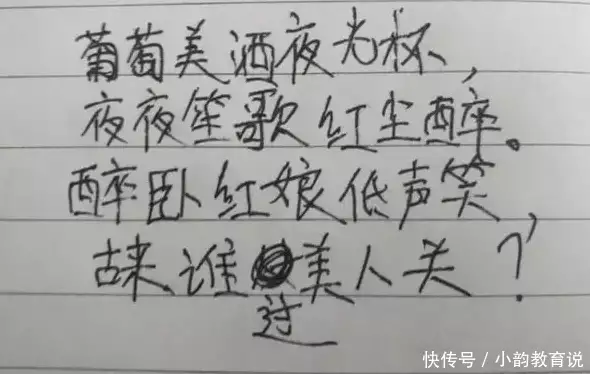 葡萄美酒夜光杯，
夜夜笙歌红尘醉。
醉卧红娘低声笑，
古来谁过美人关？
快传号／小韵教育说